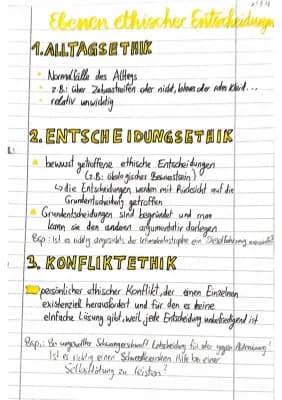 Ebenen ethischer Entscheidungen
1. ALLTAGSETHIK
Normalfälle des Alltags
z.B.: über Zebrastreifen oder nicht, blaues oder rotes Kleid...
relativ unwichtig
2. ENTSCHEIDUNGSETHIK
bewusst getroffene ethische Entscheidungen
(z.B.: ökologisches Bewusstsein)
↳ die Entscheidungen werden mit Rücksicht auf die
Grundentscheidung getroffen
Grundentscheidungen sind begründet und man
kann sie den anderen argumentativ darlegen
Bsp.: Ist es richtig angesichts der Klimakatastrophe ein Dieselfahrzeug
3. KONFLIKTETHIK
persönlicher ethischer Konflikt, der einen Einzelnen
existenziell herausfordert und für den es keine
einfache Lösung gibt, weil jede Entscheidung unbefriedigend ist
Bsp.: Bei ungewollter Schwangerschaft Entscheidung für oder gegen Abtreibung?
Ist es richtig einem Schwerkranken Hilfe bei einer
Selbsttötung zu leisten?